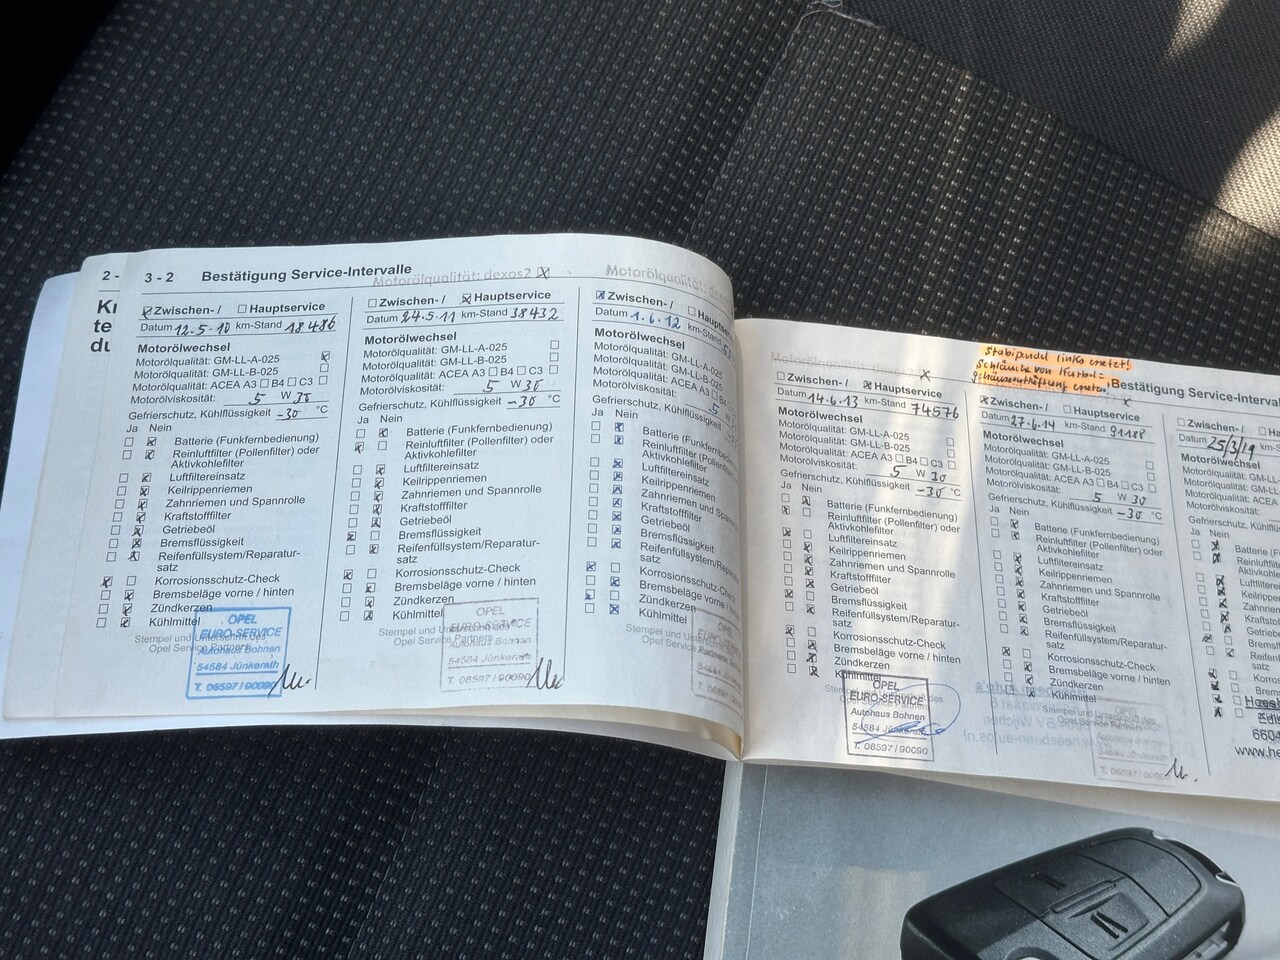 2 -
Kr
te
du
3 - 2 Bestätigung Service-Intervalle
Motorölqualität: dexos2
Zwischen- / Hauptservice
Datum 12.5.10 km-Stand 18486
Motorölwechsel
Motorölqualität: GM-LL-A-025
Motorölqualität: GM-LL-B-025
Motorölqualität: ACEA A3 B4 C3
Motorölviskosität: 5 W 30
Gefrierschutz, Kühlflüssigkeit -30 °C
Ja Nein
Batterie (Funkfernbedienung)
Reinluftfilter (Pollenfilter) oder
Aktivkohlefilter
Luftfiltereinsatz
Keilrippenriemen
Zahnriemen und Spannrolle
Kraftstofffilter
Getriebeöl
Bremsflüssigkeit
Reifenfüllsystem/Reparatur-
satz
Korrosionsschutz-Check
Bremsbeläge vorne / hinten
Zündkerzen
Kühlmittel
Stempel und Unterschrift des
Opel Service Partners
OPEL
EURO-SERVICE
Autohaus Bohnen
54584 Jünkerath
T. 06597 / 90090
Zwischen- / Hauptservice
Datum 24.5.11 km-Stand 38432
Motorölwechsel
Motorölqualität: GM-LL-A-025
Motorölqualität: GM-LL-B-025
Motorölqualität: ACEA A3 B4 C3
Motorölviskosität: 5 W 30
Gefrierschutz, Kühlflüssigkeit -30 °C
Ja Nein
Batterie (Funkfernbedienung)
Reinluftfilter (Pollenfilter) oder
Aktivkohlefilter
Luftfiltereinsatz
Keilrippenriemen
Zahnriemen und Spannrolle
Kraftstofffilter
Getriebeöl
Bremsflüssigkeit
Reifenfüllsystem/Reparatur-
satz
Korrosionsschutz-Check
Bremsbeläge vorne / hinten
Zündkerzen
Kühlmittel
OPEL
EURO-SERVICE
Autohaus Bohnen
54584 Jünkerath
T. 06597 / 90090
Motorölqualität: dexos
Zwischen- / Hauptserv
Datum 1.6.12 km-Stand
Motorölwechsel
Motorölqualität: GM-LL-A-025
Motorölqualität: GM-LL-B-025
Motorölqualität: ACEA A3 B4
Motorölviskosität: 5
Gefrierschutz, Kühlflüssigkeit
Ja Nein
Batterie (Funkfernbedienung)
Reinluftfilter (Pollenfilter)
Aktivkohlefilter
Luftfiltereinsatz
Keilrippenriemen
Zahnriemen und Span
Kraftstofffilter
Getriebeöl
Bremsflüssigkeit
Reifenfüllsystem/Repara
satz
Korrosionsschutz-Check
Bremsbeläge vorne / hinten
Zündkerzen
Kühlmittel
Zwischen- / Hauptservice
Datum 14.6.13 km-Stand 74576
Motorölwechsel
Motorölqualität: GM-LL-A-025
Motorölqualität: GM-LL-B-025
Motorölqualität: ACEA A3 B4 C3
Motorölviskosität: 5 W 30
Gefrierschutz, Kühlflüssigkeit -30 °C
Ja Nein
Batterie (Funkfernbedienung)
Reinluftfilter (Pollenfilter) oder
Aktivkohlefilter
Luftfiltereinsatz
Keilrippenriemen
Zahnriemen und Spannrolle
Kraftstofffilter
Getriebeöl
Bremsflüssigkeit
Reifenfüllsystem/Reparatur-
satz
Korrosionsschutz-Check
Bremsbeläge vorne / hinten
Zündkerzen
Kühlmittel
OPEL
EURO-SERVICE
Autohaus Bohnen
54584 Jünkerath
T. 06597 / 90090
Stabipendel links ersetzt!
Schläuche von Kurbel=
gehäuseentlüftung ersetzt
Bestätigung Service-Interval
Zwischen- / Hauptservice
Datum 27.6.14 km-Stand 91188
Motorölwechsel
Motorölqualität: GM-LL-A-025
Motorölqualität: GM-LL-B-025
Motorölqualität: ACEA A3 B4 C3
Motorölviskosität: 5 W 30
Gefrierschutz, Kühlflüssigkeit -30 °C
Ja Nein
Batterie (Funkfernbedienung)
Reinluftfilter (Pollenfilter) oder
Aktivkohlefilter
Luftfiltereinsatz
Keilrippenriemen
Zahnriemen und Spannrolle
Kraftstofffilter
Getriebeöl
Bremsflüssigkeit
Reifenfüllsystem/Reparatur-
satz
Korrosionsschutz-Check
Bremsbeläge vorne / hinten
Zündkerzen
Kühlmittel
Zwischen- / Ha
Datum 25/3/19 km-S
Motorölwechsel
Motorölqualität: GM-L
Motorölqualität: GM-L
Motorölqualität: ACEA
Motorölviskosität:
Gefrierschutz, Kühlflüs
Ja Nein
Batterie (F
Reinluftfilte
Aktivkohlef
Luftfiltere
Keilrippen
Zahnriem
Kraftstoff
Getriebe
Bremsfl
Reifenf
satz
Korros
Brem
6604
www.he